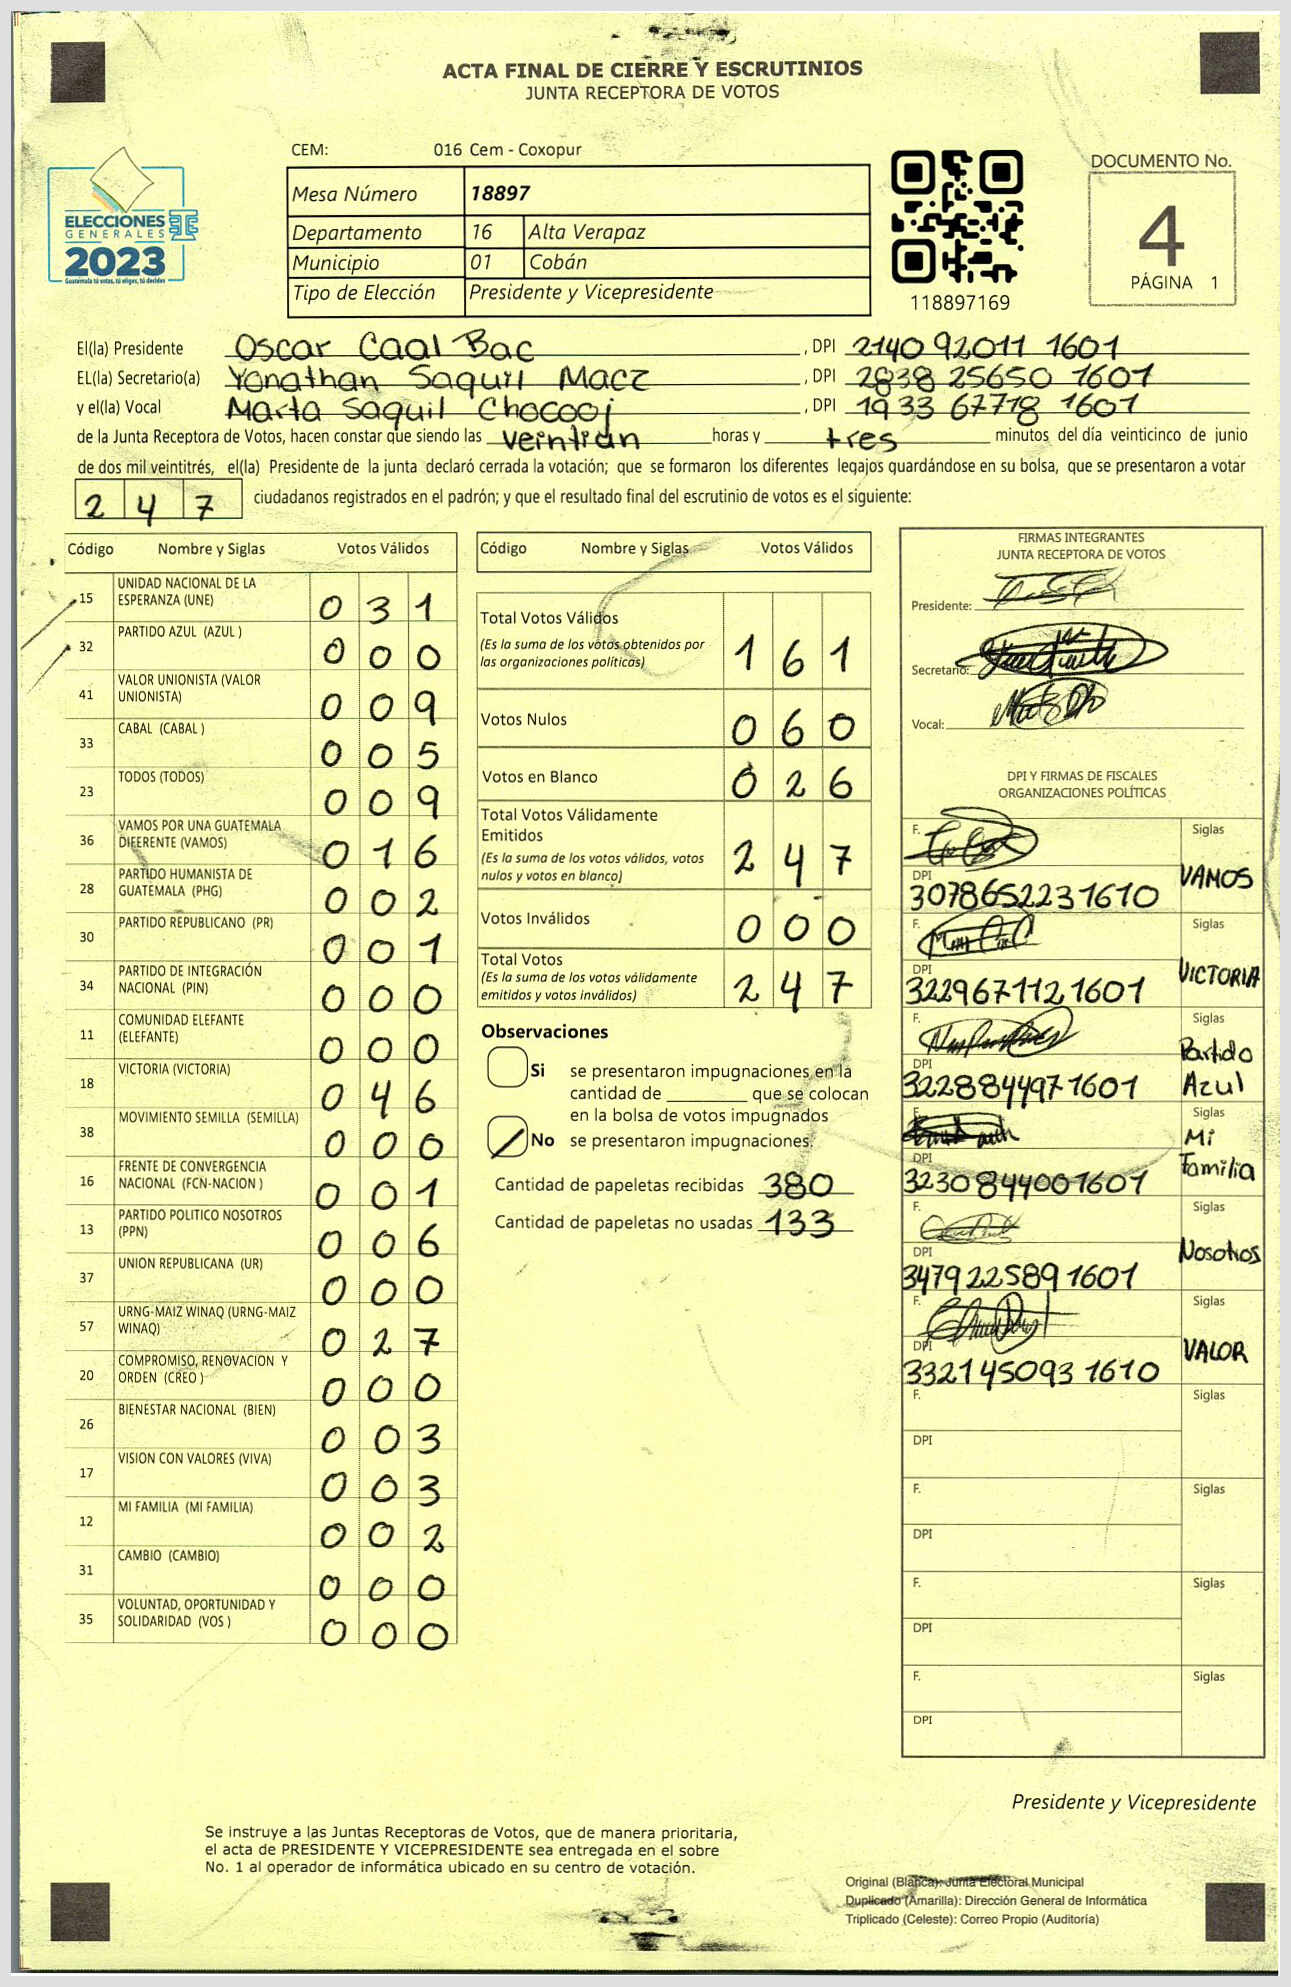 ACTA FINAL DE CIERRE Y ESCRUTINIOS
JUNTA RECEPTORA DE VOTOS
CEM: 016 Cem - Coxopur
ELECCIONES
GENERALES
2023
Guatemala tú votas, tú eliges, tú decides
Mesa Número 18897
Departamento 16 Alta Verapaz
Municipio 01 Cobán
Tipo de Elección Presidente y Vicepresidente
118897169
DOCUMENTO No.
4
PÁGINA 1
El(la) Presidente Oscar Caal Bac , DPI 2140 92011 1601
EL(la) Secretario(a) Yonathan Saquil Macz , DPI 2838 25650 1601
y el(la) Vocal Marta Saquil Chocooj , DPI 1933 67718 1601
de la Junta Receptora de Votos, hacen constar que siendo las veintiún horas y tres minutos del día veinticinco de junio
de dos mil veintitrés, el(la) Presidente de la junta declaró cerrada la votación; que se formaron los diferentes legajos guardándose en su bolsa, que se presentaron a votar
247 ciudadanos registrados en el padrón; y que el resultado final del escrutinio de votos es el siguiente:
Código Nombre y Siglas Votos Válidos
15 UNIDAD NACIONAL DE LA ESPERANZA (UNE) 031
32 PARTIDO AZUL (AZUL ) 000
41 VALOR UNIONISTA (VALOR UNIONISTA) 009
33 CABAL (CABAL ) 005
23 TODOS (TODOS) 009
36 VAMOS POR UNA GUATEMALA DIFERENTE (VAMOS) 016
28 PARTIDO HUMANISTA DE GUATEMALA (PHG) 002
30 PARTIDO REPUBLICANO (PR) 001
34 PARTIDO DE INTEGRACIÓN NACIONAL (PIN) 000
11 COMUNIDAD ELEFANTE (ELEFANTE) 000
18 VICTORIA (VICTORIA) 046
38 MOVIMIENTO SEMILLA (SEMILLA) 000
16 FRENTE DE CONVERGENCIA NACIONAL (FCN-NACION ) 001
13 PARTIDO POLITICO NOSOTROS (PPN) 006
37 UNION REPUBLICANA (UR) 000
57 URNG-MAIZ WINAQ (URNG-MAIZ WINAQ) 027
20 COMPROMISO, RENOVACION Y ORDEN (CREO ) 000
26 BIENESTAR NACIONAL (BIEN) 003
17 VISION CON VALORES (VIVA) 003
12 MI FAMILIA (MI FAMILIA) 002
31 CAMBIO (CAMBIO) 000
35 VOLUNTAD, OPORTUNIDAD Y SOLIDARIDAD (VOS ) 000
Código Nombre y Siglas Votos Válidos
Total Votos Válidos 161
(Es la suma de los votos obtenidos por
las organizaciones políticas)
Votos Nulos 060
Votos en Blanco 026
Total Votos Válidamente
Emitidos 247
(Es la suma de los votos válidos, votos
nulos y votos en blanco)
Votos Inválidos 000
Total Votos 247
(Es la suma de los votos válidamente
emitidos y votos inválidos)
Observaciones
Si se presentaron impugnaciones en la
cantidad de ________ que se colocan
en la bolsa de votos impugnados
No se presentaron impugnaciones.
Cantidad de papeletas recibidas 380
Cantidad de papeletas no usadas 133
FIRMAS INTEGRANTES
JUNTA RECEPTORA DE VOTOS
Presidente:
Secretario:
Vocal:
DPI Y FIRMAS DE FISCALES
ORGANIZACIONES POLÍTICAS
F. Siglas
DPI 3078652231610 VAMOS
F. Siglas
DPI 3229671121601 VICTORIA
F. Siglas
DPI 3228844971601 Partido Azul
F. Siglas
DPI 3230844001601 Mi Familia
F. Siglas
DPI 3479225891601 Nosotros
F. Siglas
DPI 3321450931610 VALOR
F. Siglas
DPI
F. Siglas
DPI
F. Siglas
DPI
F. Siglas
DPI
Presidente y Vicepresidente
Se instruye a las Juntas Receptoras de Votos, que de manera prioritaria,
el acta de PRESIDENTE Y VICEPRESIDENTE sea entregada en el sobre
No. 1 al operador de informática ubicado en su centro de votación.
Original (Blanca): Junta Electoral Municipal
Duplicado (Amarilla): Dirección General de Informática
Triplicado (Celeste): Correo Propio (Auditoría)